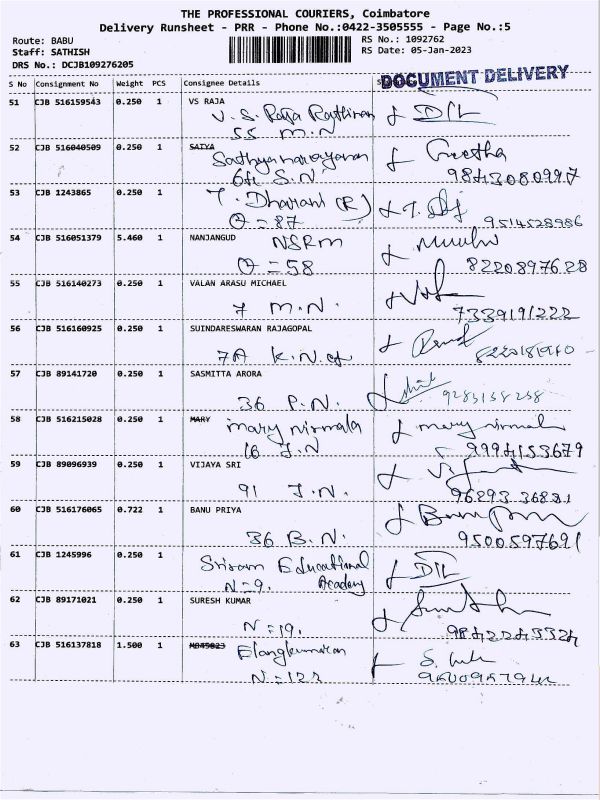 THE PROFESSIONAL COURIERS, Coimbatore
Delivery Runsheet - PRR - Phone No.:0422-3505555 - Page No.:5
Route: BABU
RS No.: 1092762
Staff: SATHISH
RS Date: 05-Jan-2023
DRS No.: DCJB109276205
DOCUMENT DELIVERY
S No Consignment No Weight PCS Consignee Details
51 CJB 516159543 0.250 1 VS RAJA
V. S. Raja Rathinam
55 M.N
D/L
52 CJB 516040509 0.250 1 SATYA
Sathyanarayanan
S.N
Geetha
9843080997
53 CJB 1243865 0.250 1
T. Dharani (R)
Q = 87
9514528986
54 CJB 516051379 5.460 1 NANJANGUD
NSRM
Q = 58
8220897628
55 CJB 516140273 0.250 1 VALAN ARASU MICHAEL
7 M.N.
7339191222
56 CJB 516160925 0.250 1 SUINDARESWARAN RAJAGOPAL
7A K.N.
57 CJB 89141720 0.250 1 SASMITTA ARORA
36 P.N.
58 CJB 516215028 0.250 1 MARY
mary nirmala
16 J.N
mary nirmal
9994153679
59 CJB 89096939 0.250 1 VIJAYA SRI
91 J.N.
96293 36881
60 CJB 516176065 0.722 1 BANU PRIYA
36 B.N.
9500597691
61 CJB 1245996 0.250 1
Sriram Educational
N = 9. Academy
D/L
62 CJB 89171021 0.250 1 SURESH KUMAR
N = 19.
63 CJB 516137818 1.500 1
Elangkumaran
N = 122